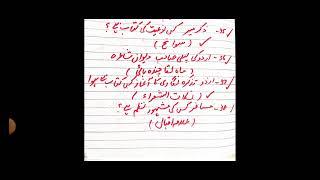 35- ذکر میر کس نوعیت کی کتاب ہے؟
( سوانح )
36- اردو کی پہلی صاحب دیوان شاعرہ
( ماہ لقا چندہ بائی )
37- اردو تذکرہ نگاری کا آغاز کس کتاب سے ہوا
( نکات الشعراء )
38- مسافر کس کی مشہور نظم ہے؟
( علامہ اقبال )